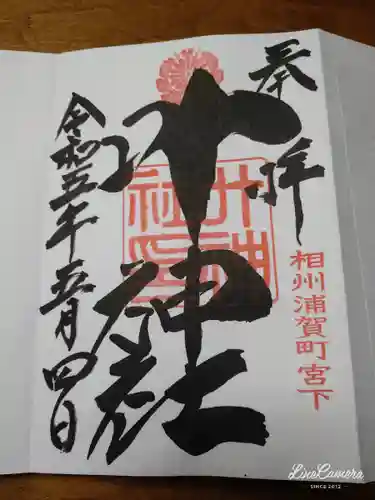 奉拝
相州浦賀町宮下
叶神社
叶神社印
令和五年五月四日
LineCamera
SINCE 2012